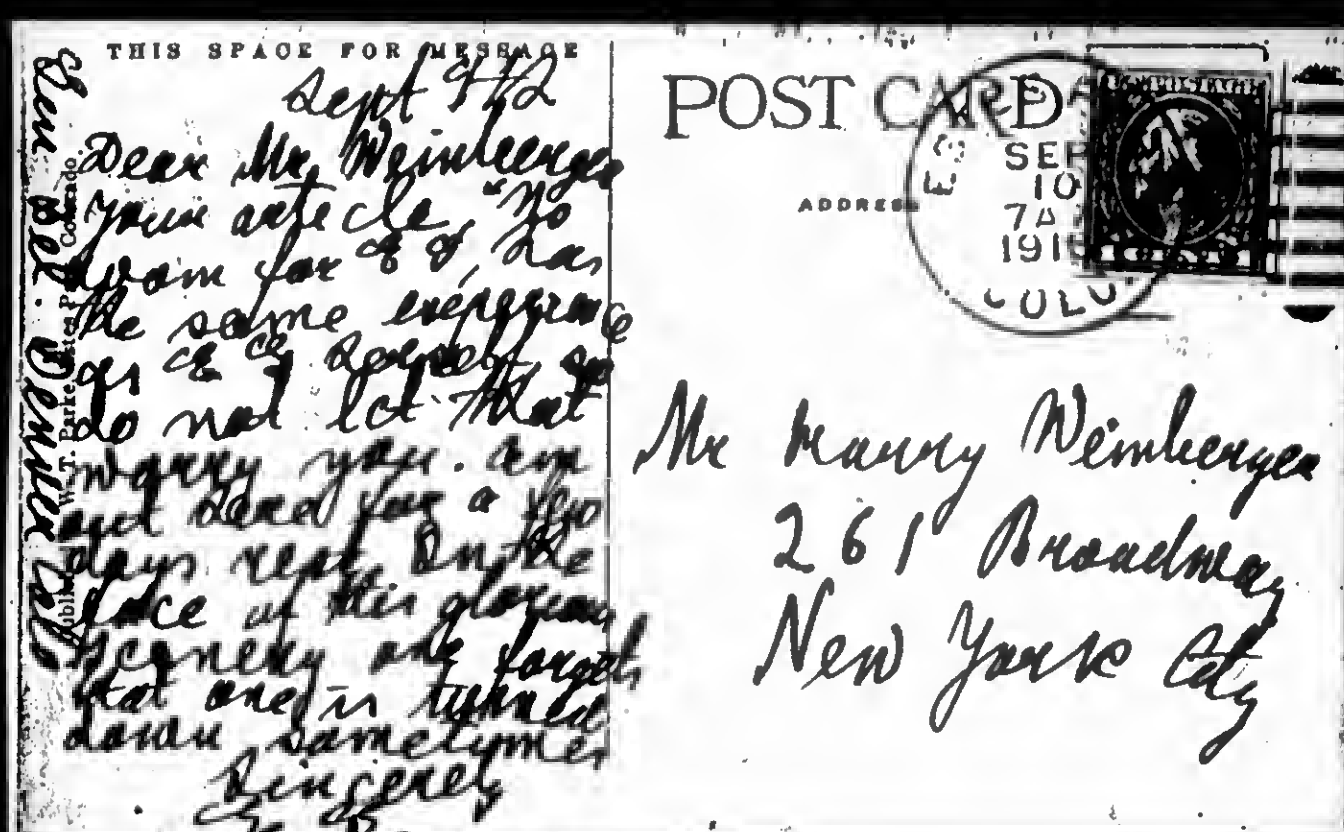 THIS SPACE FOR MESSAGE
Sept 9th
Dear Mr. Weinberger
Your article, "No
room for E G, has
the same experience
as E G herself, so
do not let that
worry you. Am
out here for a few
days rest. In the
face of this glorious
scenery one forgets
that one is turned
down sometimes
Sincerely
Gen Del. Denver Col
W. T. Parke
Colorado.
POST CARD
ADDRESS
SEP
10
7A
191
COLO
U.S. POSTAGE
Mr Harry Weinberger
261 Broadway
New York City